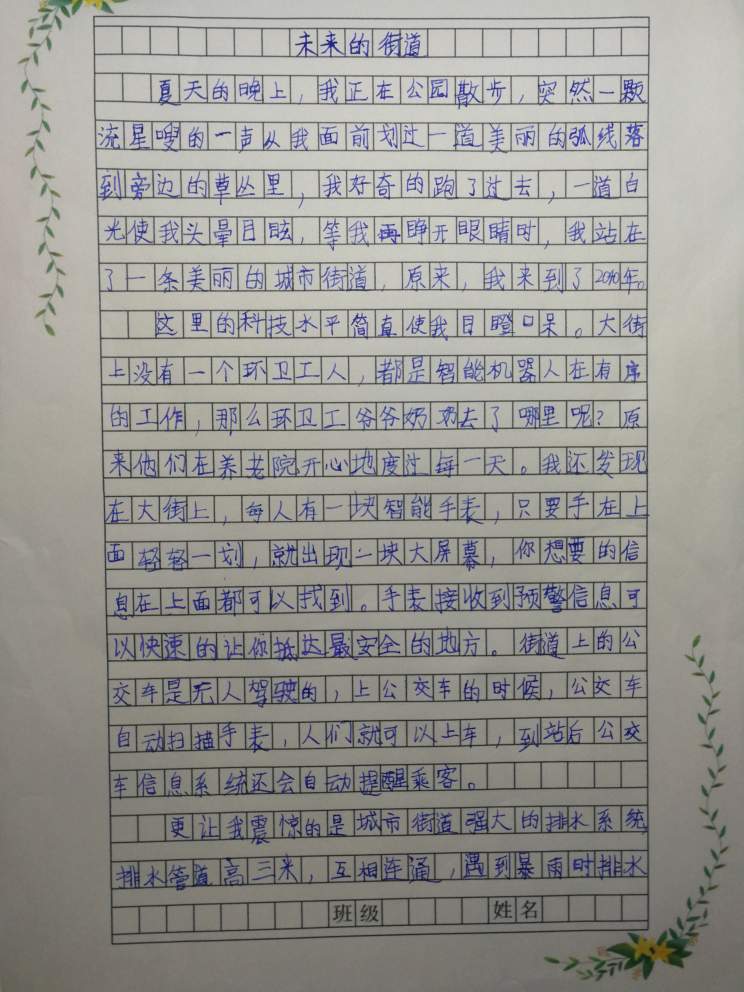 未来的街道
夏天的晚上，我正在公园散步，突然一颗
流星嗖的一声从我面前划过一道美丽的弧线落
到旁边的草丛里，我好奇的跑了过去，一道白
光使我头晕目眩，等我再睁开眼睛时，我站在
了一条美丽的城市街道，原来，我来到了2040年。
这里的科技水平简直使我目瞪口呆。大街
上没有一个环卫工人，都是智能机器人在有序
的工作，那么环卫工爷爷奶奶去了哪里呢？原
来他们在养老院开心地度过每一天。我还发现
在大街上，每人有一块智能手表，只要手在上
面轻轻一划，就出现一块大屏幕，你想要的信
息在上面都可以找到。手表接收到预警信息可
以快速的让你抵达最安全的地方。街道上的公
交车是无人驾驶的，上公交车的时候，公交车
自动扫描手表，人们就可以上车，到站后公交
车信息系统还会自动提醒乘客。
更让我震惊的是城市街道强大的排水系统，
排水管道高三米，互相连通，遇到暴雨时排水
班级 姓名